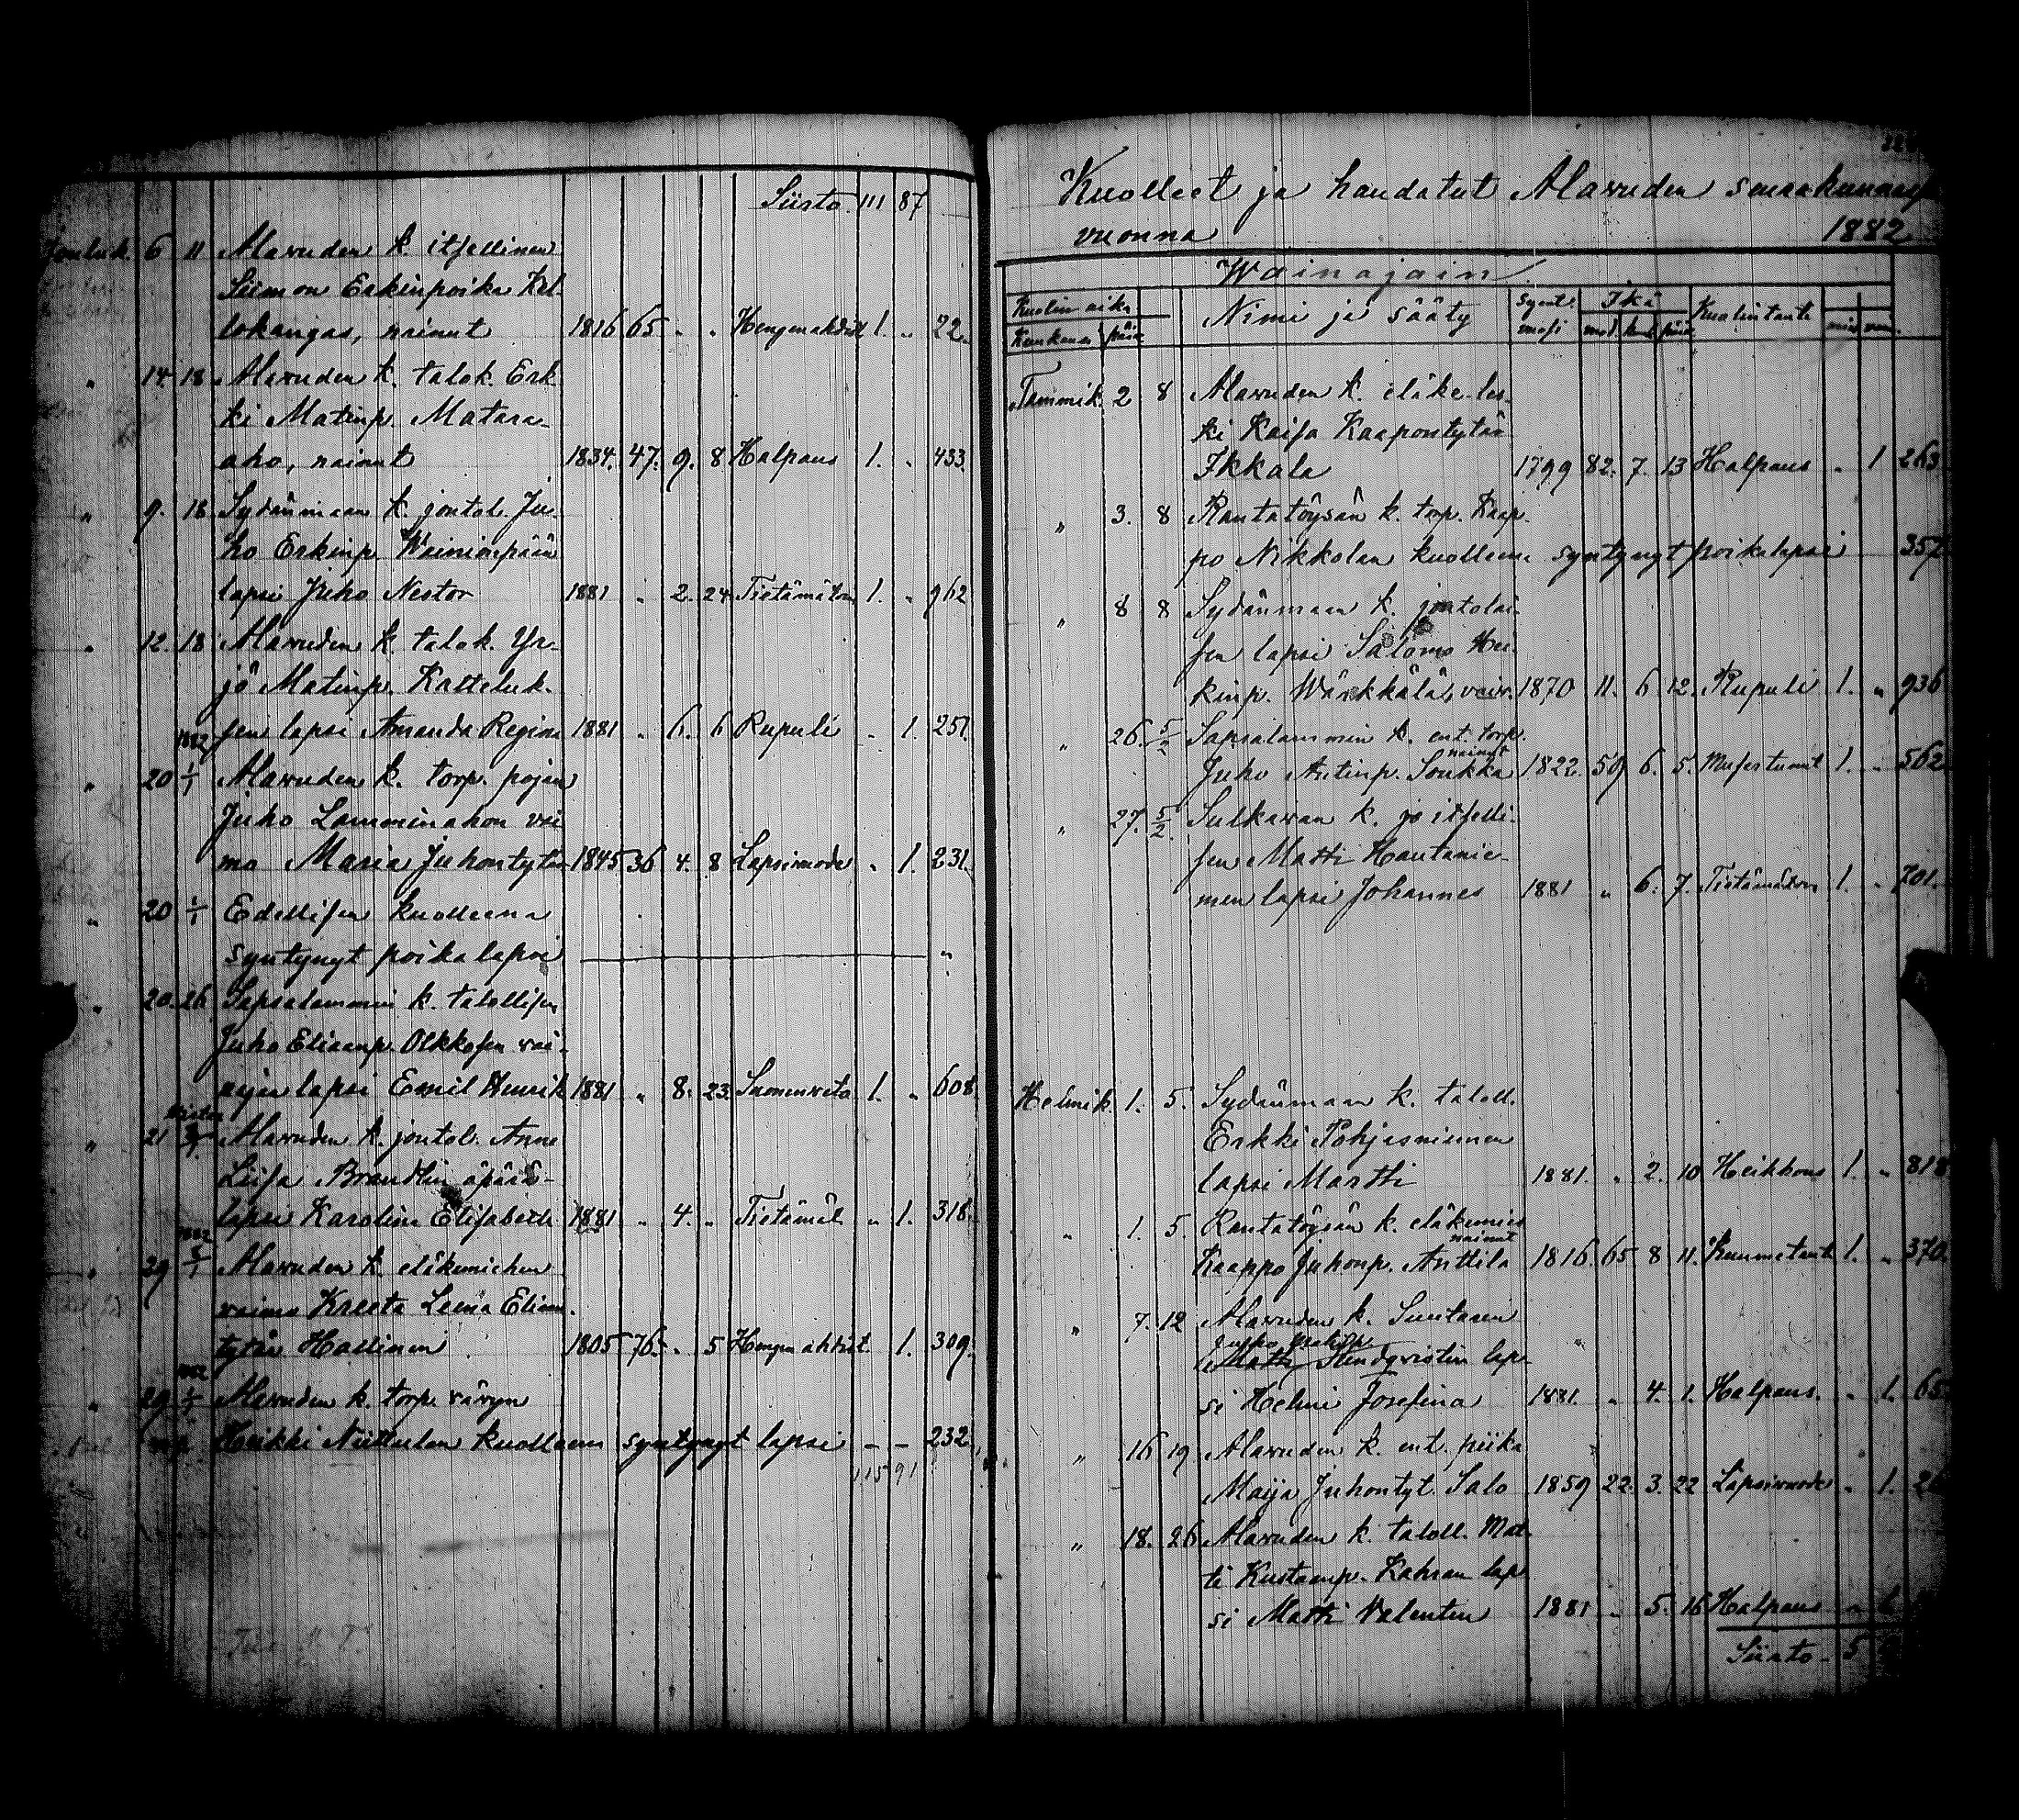 Siisto 111 87
Jouluk. 6 11 Alavuden k. itsellinen
Siimon Erkinpoika Kel-
lokangas, nainut 1816 65 „ „ Hengenahdist 1. „ 22.
„ 14 18 Alavuden k. talok. Erk
ki Matinp. Matara-
aho, nainut 1834. 47. 9. 8 Halpaus 1. „ 433.
„ 9. 18 Sydänmaan k. joutol. Ju-
ho Erkinp. Wainionpään
lapsi Juho Nestor 1881 „ 2. 24 Tietämätön 1. „ 962
„ 12. 18 Alavuden k. talok. Yr-
jö Matinp. Katteluk-
1882 sen lapsi Amanda Regina 1881 „ 6. 6 Rupuli „ 1. 251.
„ 20 1/1 Alavuden k. torp. pojan
Juho Lamminahon vai
mo Maria Juhontytär 1845 36 4. 8 Lapsivuode „ 1. 231.
„ 20 1/1 Edellisen kuolleena
syntynyt poikalapsi „
„ 20. 26 Sapsalammin k. talollisen
Juho Eliaanp. Olkkosen vai-
najan lapsi Emil Henrik 1881 „ 8. 23. Suonenveto 1. „ 608
„ 21 Alavuden k. joutol. Anna
Liisa Brandtin äpärä-
lapsi Karolina Elisabeth 1881 „ 4. „ Tietämät „ 1. 318.
1882
„ 29 Alavuden k. eläkemiehen
vaimo Kreeta Leena Eliaan-
tytär Hallinen 1805 76. „ 5 Hengenahdist. 1. 309.
1882
„ 29 1/1 Alavuden k. torp. vävyn
Heikki Niittulan kuolleena syntynyt lapsi – – 232.
115 91
Kuolleet ja haudatut Alavuden seurakunnassa
vuonna 1882
Wainajain
Kuolin aika Nimi ja sääty Synt. Ikä Kuolintauti
Kuukausi päiv vuosi vuod. kuuk. päiv. mie. vai.
Tammik. 2 8 Alavuden k. eläke-les-
ki Kaisa Kaapontytär
Ikkala 1799 82. 7. 13 Halpaus „ 1 263
„ 3. 8 Rantatöysän k. torp. Kaap-
po Nikkolan kuolleena syntynyt poikalapsi 357
„ 8 8 Sydänmaan k. joutolai-
sen lapsi Salomo Hei-
kinp. Wärkkälä, vaiv. 1870 11. 6. 12. Rupuli 1. „ 936
„ 26. 5/2 Sapsalammin k. ent. torp.
nainut
Juho Antinp. Soukka 1822. 59 6. 5. 1. „ 562
„ 27. 5/2. Sulkavan k. ja itselli-
sen Matti Hautanie-
men lapsi Johannes 1881 „ 6. 7. Tietämätön 1. „ 701.
Helmik. 1. 5. Sydänmaan k. taloll.
Erkki Pohjoisniemen
lapsi Martti 1881. „ 2. 10 Heikkous 1. „ 818
„ 1. 5. Rantatöysän k. eläkemies
nainut
Kaappo Juhonp. Anttila 1816. 65 8 11. Kuumetauti 1. „ 370.
„ 7. 12 Alavuden k. Suutarin
Matti Sundqvistin lap-
si Helmi Josefina 1881. „ 4. 1. Halpaus. „ 1. 65
„ 16 19 Alavuden k. ent. piika
Maija Juhontyt. Salo 1859 22. 3. 22 Lapsivuode „ 1.
„ 18. 26 Alavuden k. taloll. Mat-
ti Kustaanp. Kahran lap
si Matti Valentin 1881 „ 5. 16 Halpaus
Siirto – 5